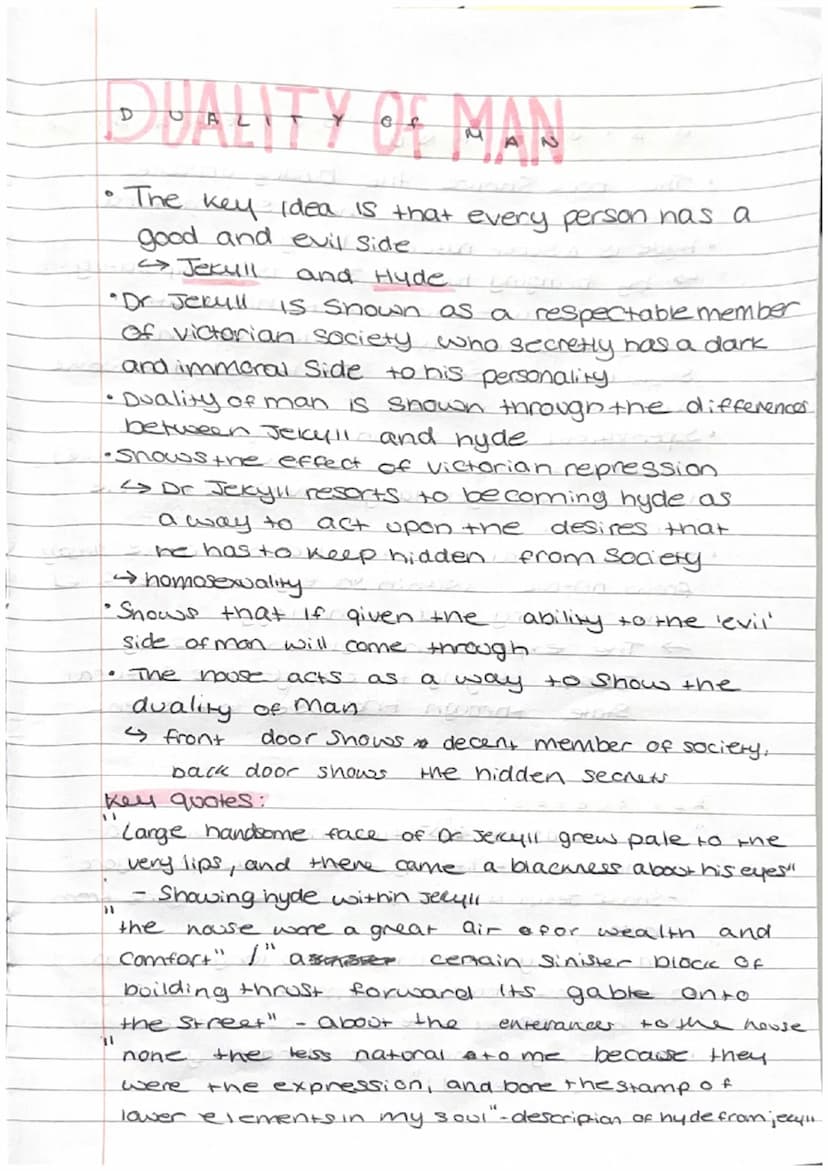 DUALITY OF MAN
• The key idea is that every person has a
good and evil side
↳ Jekyll and Hyde
• Dr Jekyll is shown as a respectable member
of victorian society who secretly has a dark
and immoral side to his personality
• Duality of man is shown through the differences
between Jekyll and hyde
• Shows the effect of victorian repression
↳ Dr Jekyll resorts to becoming hyde as
a way to act upon the desires that
he has to keep hidden from society
→ homosexuality
• Shows that if given the ability to the 'evil'
side of man will come through
• The house acts as a way to show the
duality of Man
↳ front door shows decent member of society,
back door shows the hidden secrets
Key quotes:
"Large handsome face of Dr Jekyll grew pale to the
very lips, and there came a blackness about his eyes"
- Showing hyde within Jekyll
"the house wore a great air of wealth and
comfort" / "a certain sinister block of
building thrust forward its gable onto
the street" - about the enterances to the house
"none the less natural to me because they
were the expression, and bore the stamp of
lower elements in my soul" - description of hyde from jekyll